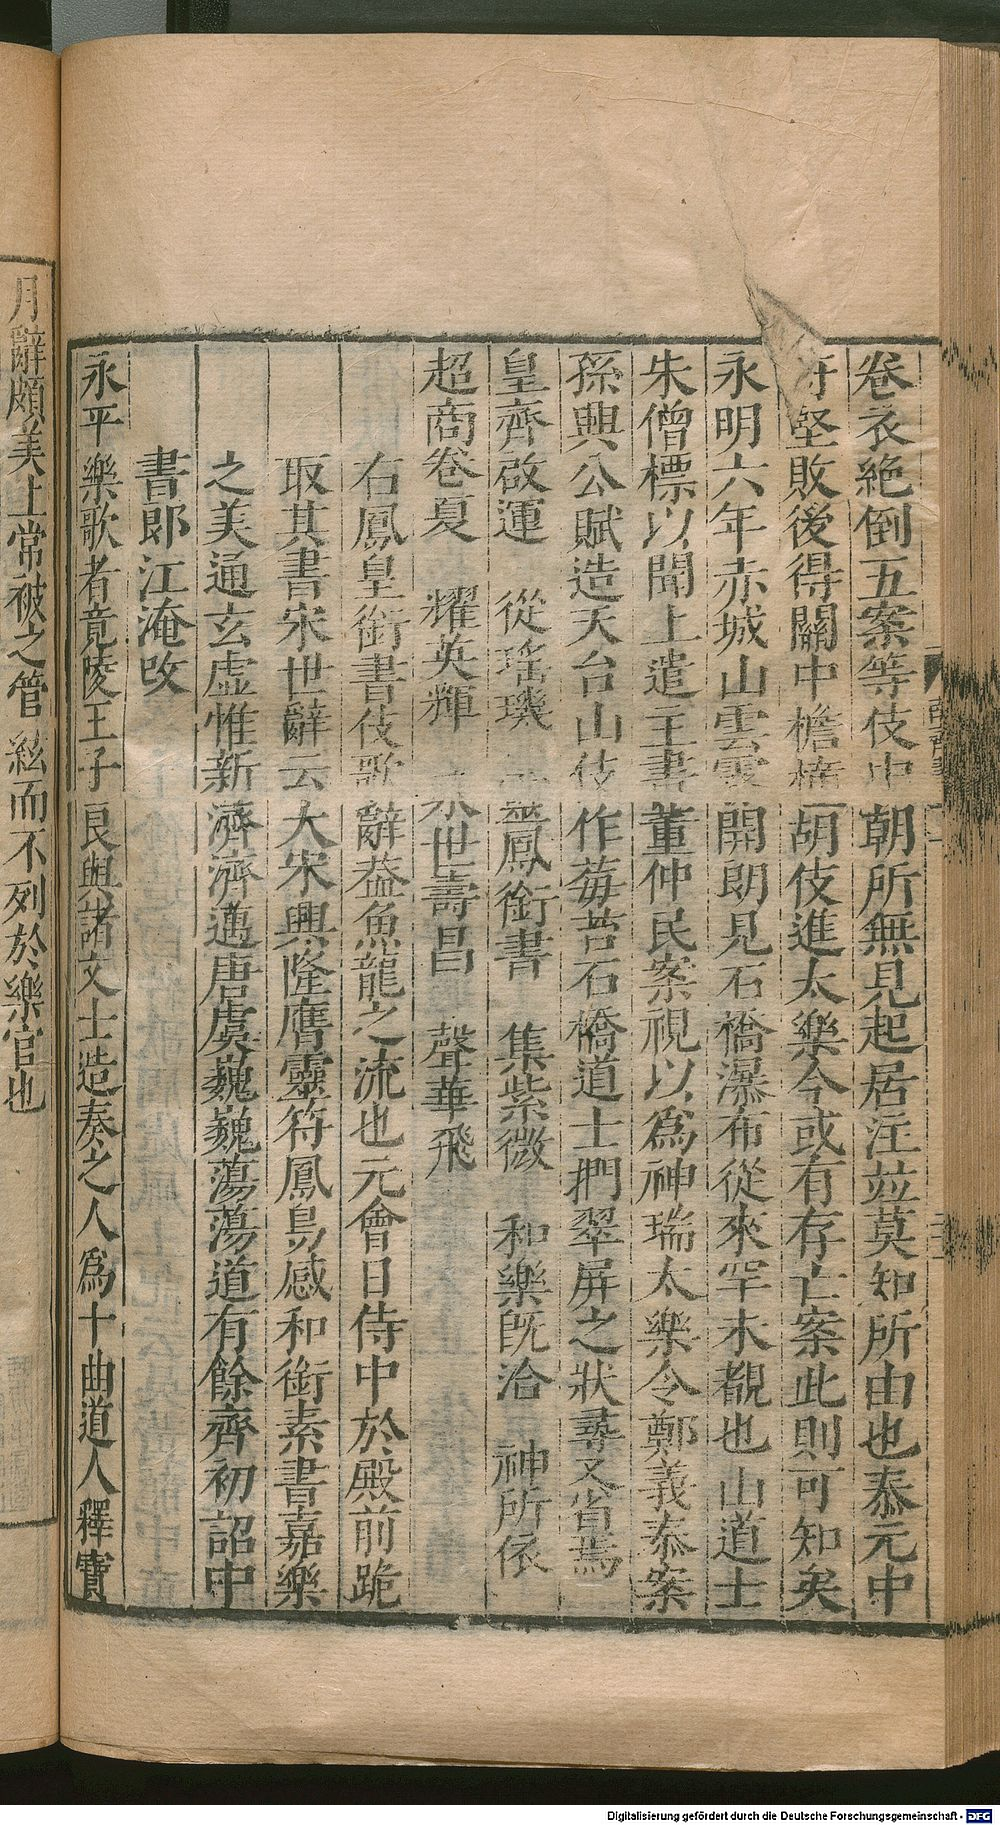 卷衣絶倒五案等伎中朝所無見起居注並莫知所由也泰元中
苻堅敗後得關中檐橦胡伎進太樂今或有存亡案此則可知矣
永明六年赤城山雲霧開朗見石橋瀑布從來罕未覩也山道士
朱僧標以聞上遣主書董仲民案視以爲神瑞太樂令鄭義泰案
孫興公賦造天台山伎作莓苔石橋道士捫翠屏之狀尋又省焉
皇齊啟運 從瑤璣 靈鳳銜書 集紫微 和樂既洽 神所依
超商卷夏 耀英輝 永世壽昌 聲華飛
右鳳皇銜書伎歌辭蓋魚龍之流也元會日侍中於殿前跪
取其書宋世辭云大宋興隆膺靈符鳳鳥感和銜素書嘉樂
之美通玄虛惟新濟濟邁唐虞巍巍蕩蕩道有餘齊初詔中
書郎江淹改
永平樂歌者竟陵王子良與諸文士造奏之人爲十曲道人釋寶
月辭頗美上常被之管絃而不列於樂官也
Digitalisierung gefördert durch die Deutsche Forschungsgemeinschaft - DFG